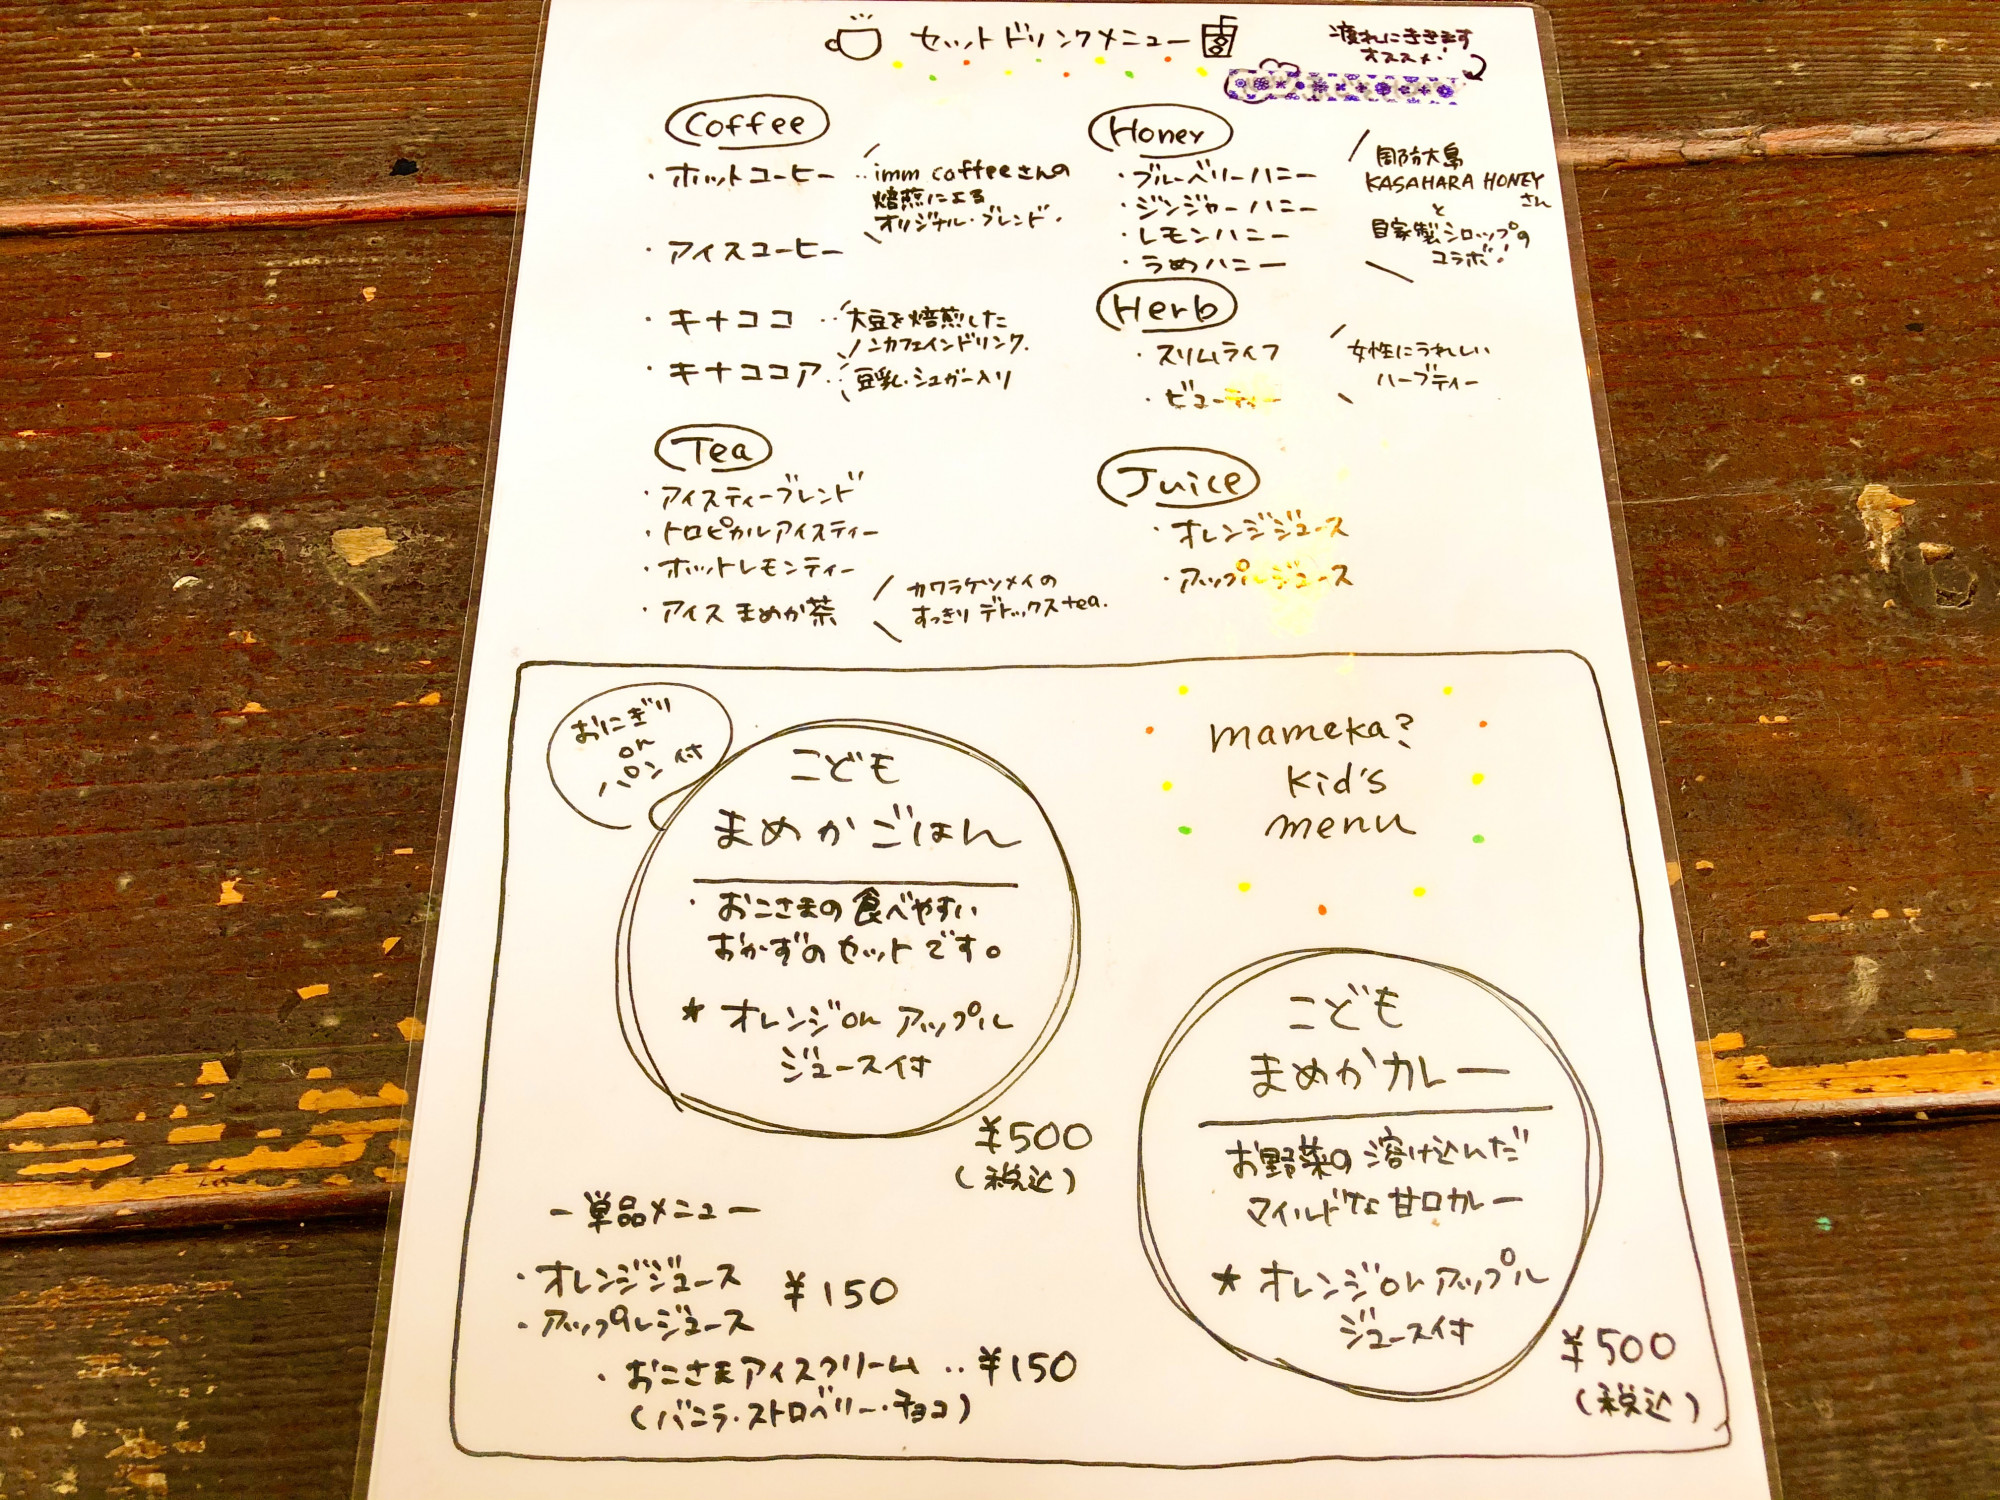 セットドリンクメニュー
疲れにききます
オススメ!
Coffee
・ホットコーヒー
‥imm coffeeさんの
焙煎による
オリジナル・ブレンド.
・アイスコーヒー
・キナココ ‥大豆を焙煎した
ノンカフェインドリンク.
・キナココア‥豆乳・シュガー入り
Tea
・アイスティーブレンド
・トロピカルアイスティー
・ホットレモンティー
・アイスまめか茶
カワラケツメイの
すっきりデトックスtea.
Honey
・ブルーベリーハニー
・ジンジャーハニー
・レモンハニー
・うめハニー
周防大島
KASAHARA HONEY
さん
と
自家製シロップの
コラボ!
Herb
・スリムライフ
・ビューティー
女性にうれしい
ハーブティー
Juice
・オレンジジュース
・アップルジュース
おにぎり
or
パン付
こども
まめかごはん
・おこさまの食べやすい
おかずのセットです。
★オレンジorアップル
ジュース付
¥500
(税込)
mameka?
kid's
menu
こども
まめかカレー
お野菜の溶け込んだ
マイルドな甘口カレー
★オレンジorアップル
ジュース付
¥500
(税込)
ー単品メニューー
・オレンジジュース ¥150
・アップルジュース
・おこさまアイスクリーム ‥¥150
(バニラ・ストロベリー・チョコ)